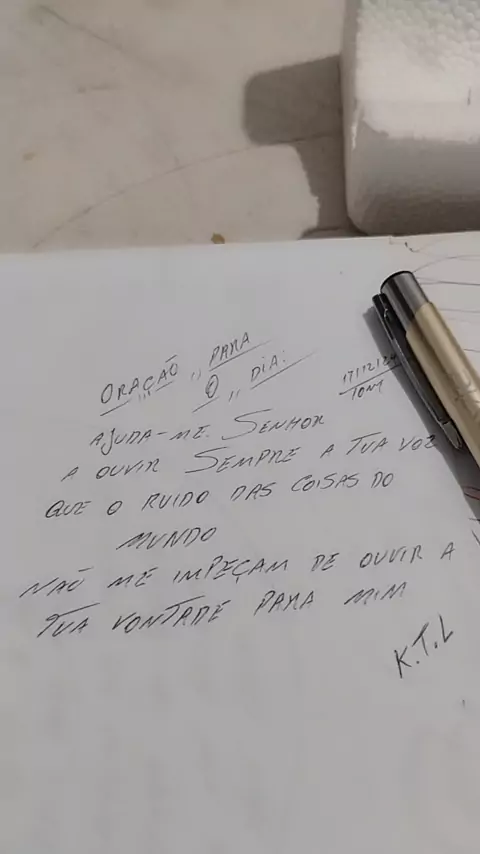 ORAÇÃO ,, PARA
O ,, DIA:
17/12/24
TONY
AJUDA-ME. SENHOR
A OUVIR SEMPRE A TUA VOZ
QUE O RUIDO DAS COISAS DO
MUNDO
NÃO ME IMPEÇAM DE OUVIR A
TUA VONTADE PARA MIM
K.T.L